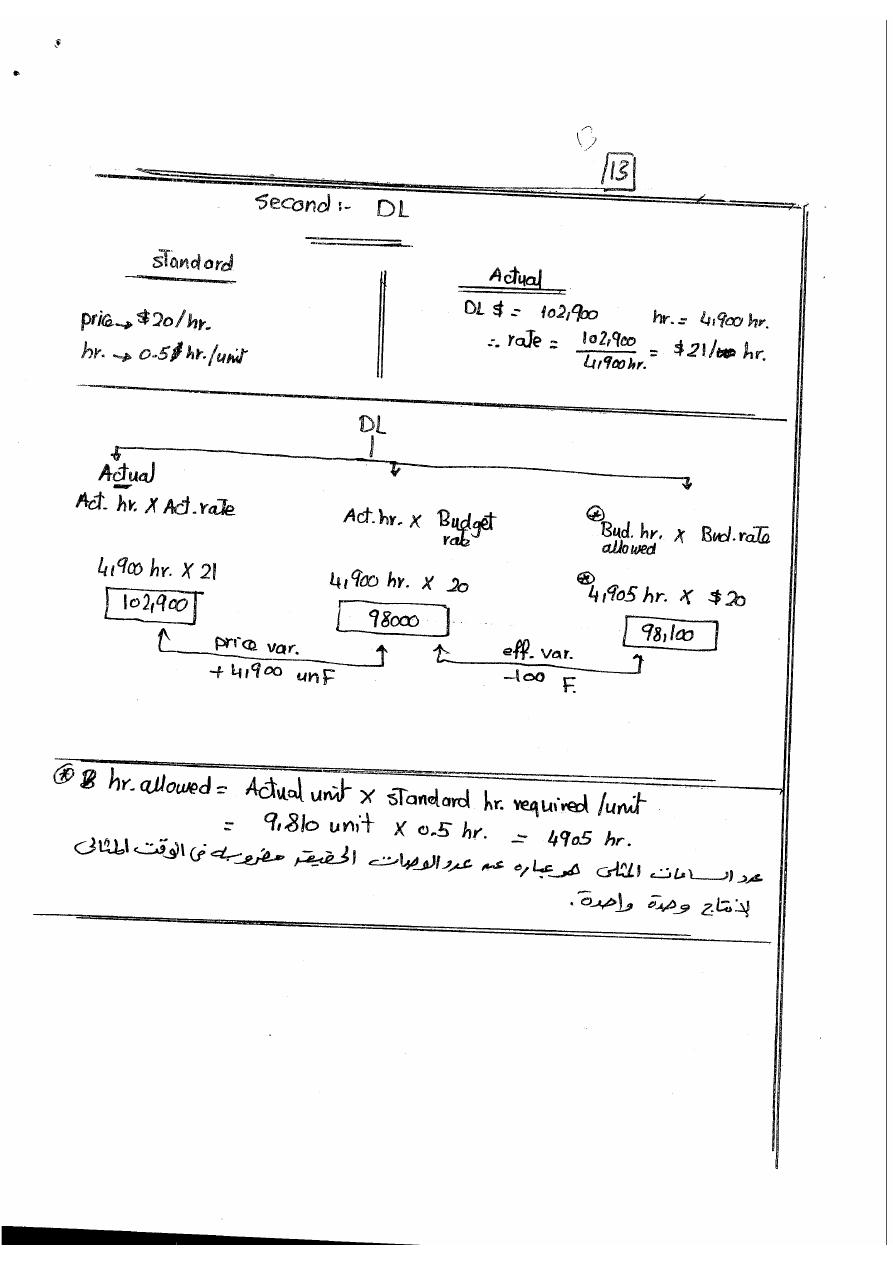 13
Second :- DL
Standard
Actual
price → $20/hr.
hr. → 0.5 hr./unit
DL $ = 102,900 hr. = 4,900 hr.
∴ rate = 102,900 / 4,900 hr. = $21/ hr.
DL
Actual
Act. hr. X Act. rate
Act. hr. X Budget rate
* Bud. hr. allowed X Bud. rate
4,900 hr. X 21
4,900 hr. X 20
* 4,905 hr. X $20
102,900
98000
98,100
price var.
+ 4,900 unF
eff. var.
-100 F.
* hr. allowed = Actual unit X standard hr. required /unit
= 9,810 unit X 0.5 hr. = 4905 hr.
عدد الساعات المثلى هو عباره عن عدد الوحدات الحقيقيه مضروبه فى الوقت المثالى
لإنتاج وحدة واحدة.